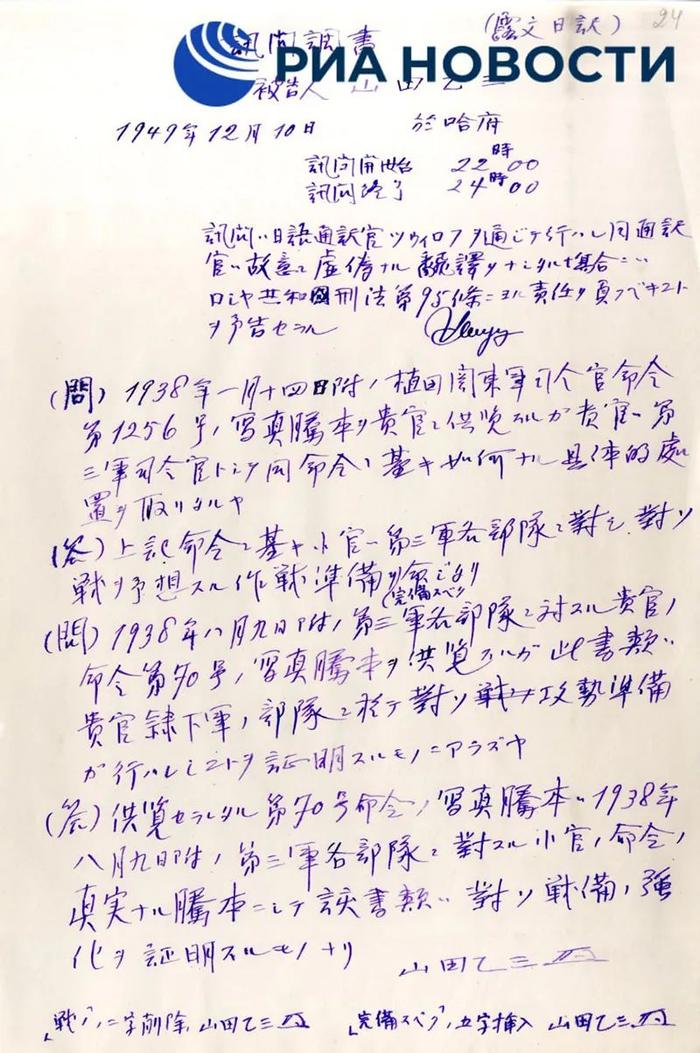 (露文日訳) 24
訊問調書
РИА НОВОСТИ
被告人 山田乙三
1949年12月10日 於哈府
訊問開始 22時00
訊問終了 24時00
訊問ハ日語通訳官ツウィロフヲ通ジテ行ハレ同通訳
官ハ故意ニ虚偽ナル翻譯ヲナシタル場合ニハ
ロシヤ共和國刑法第95條ニヨル責任ヲ負フベキコト
ヲ予告セラル
(問) 1938年一月十四日附ノ植田関東軍司令官命令
第1256号ノ写真騰本ヲ貴官ニ供覧スルガ貴官ハ第
三軍司令官トシテ同命令ニ基キ如何ナル具体的處
置ヲ取リタルヤ
(答) 上記命令ニ基キ小官ハ第三軍各部隊ニ對シ對ソ
戦ヲ予想スル作戦準備ヲ命ジタリ
(完備スベク)
(問) 1938年八月九日附ノ第三軍各部隊ニ対スル貴官ノ
命令第70号ノ写真騰本ヲ供覧スルガ此書類ハ
貴官隷下軍ノ部隊ニ於テ對ソ戦攻勢準備
ガ行ハレシコトヲ証明スルモノニアラズヤ
(答) 供覧セラレタル第70号命令ノ写真騰本ハ1938年
八月九日附ノ第三軍各部隊ニ對スル小官ノ命令ノ
真実ナル騰本ニシテ該書類ハ對ソ戦備ノ強
化ヲ証明スルモノナリ
山田乙三
「戦ノ」ハ二字削除 山田乙三 「完備スベク」五字挿入 山田乙三